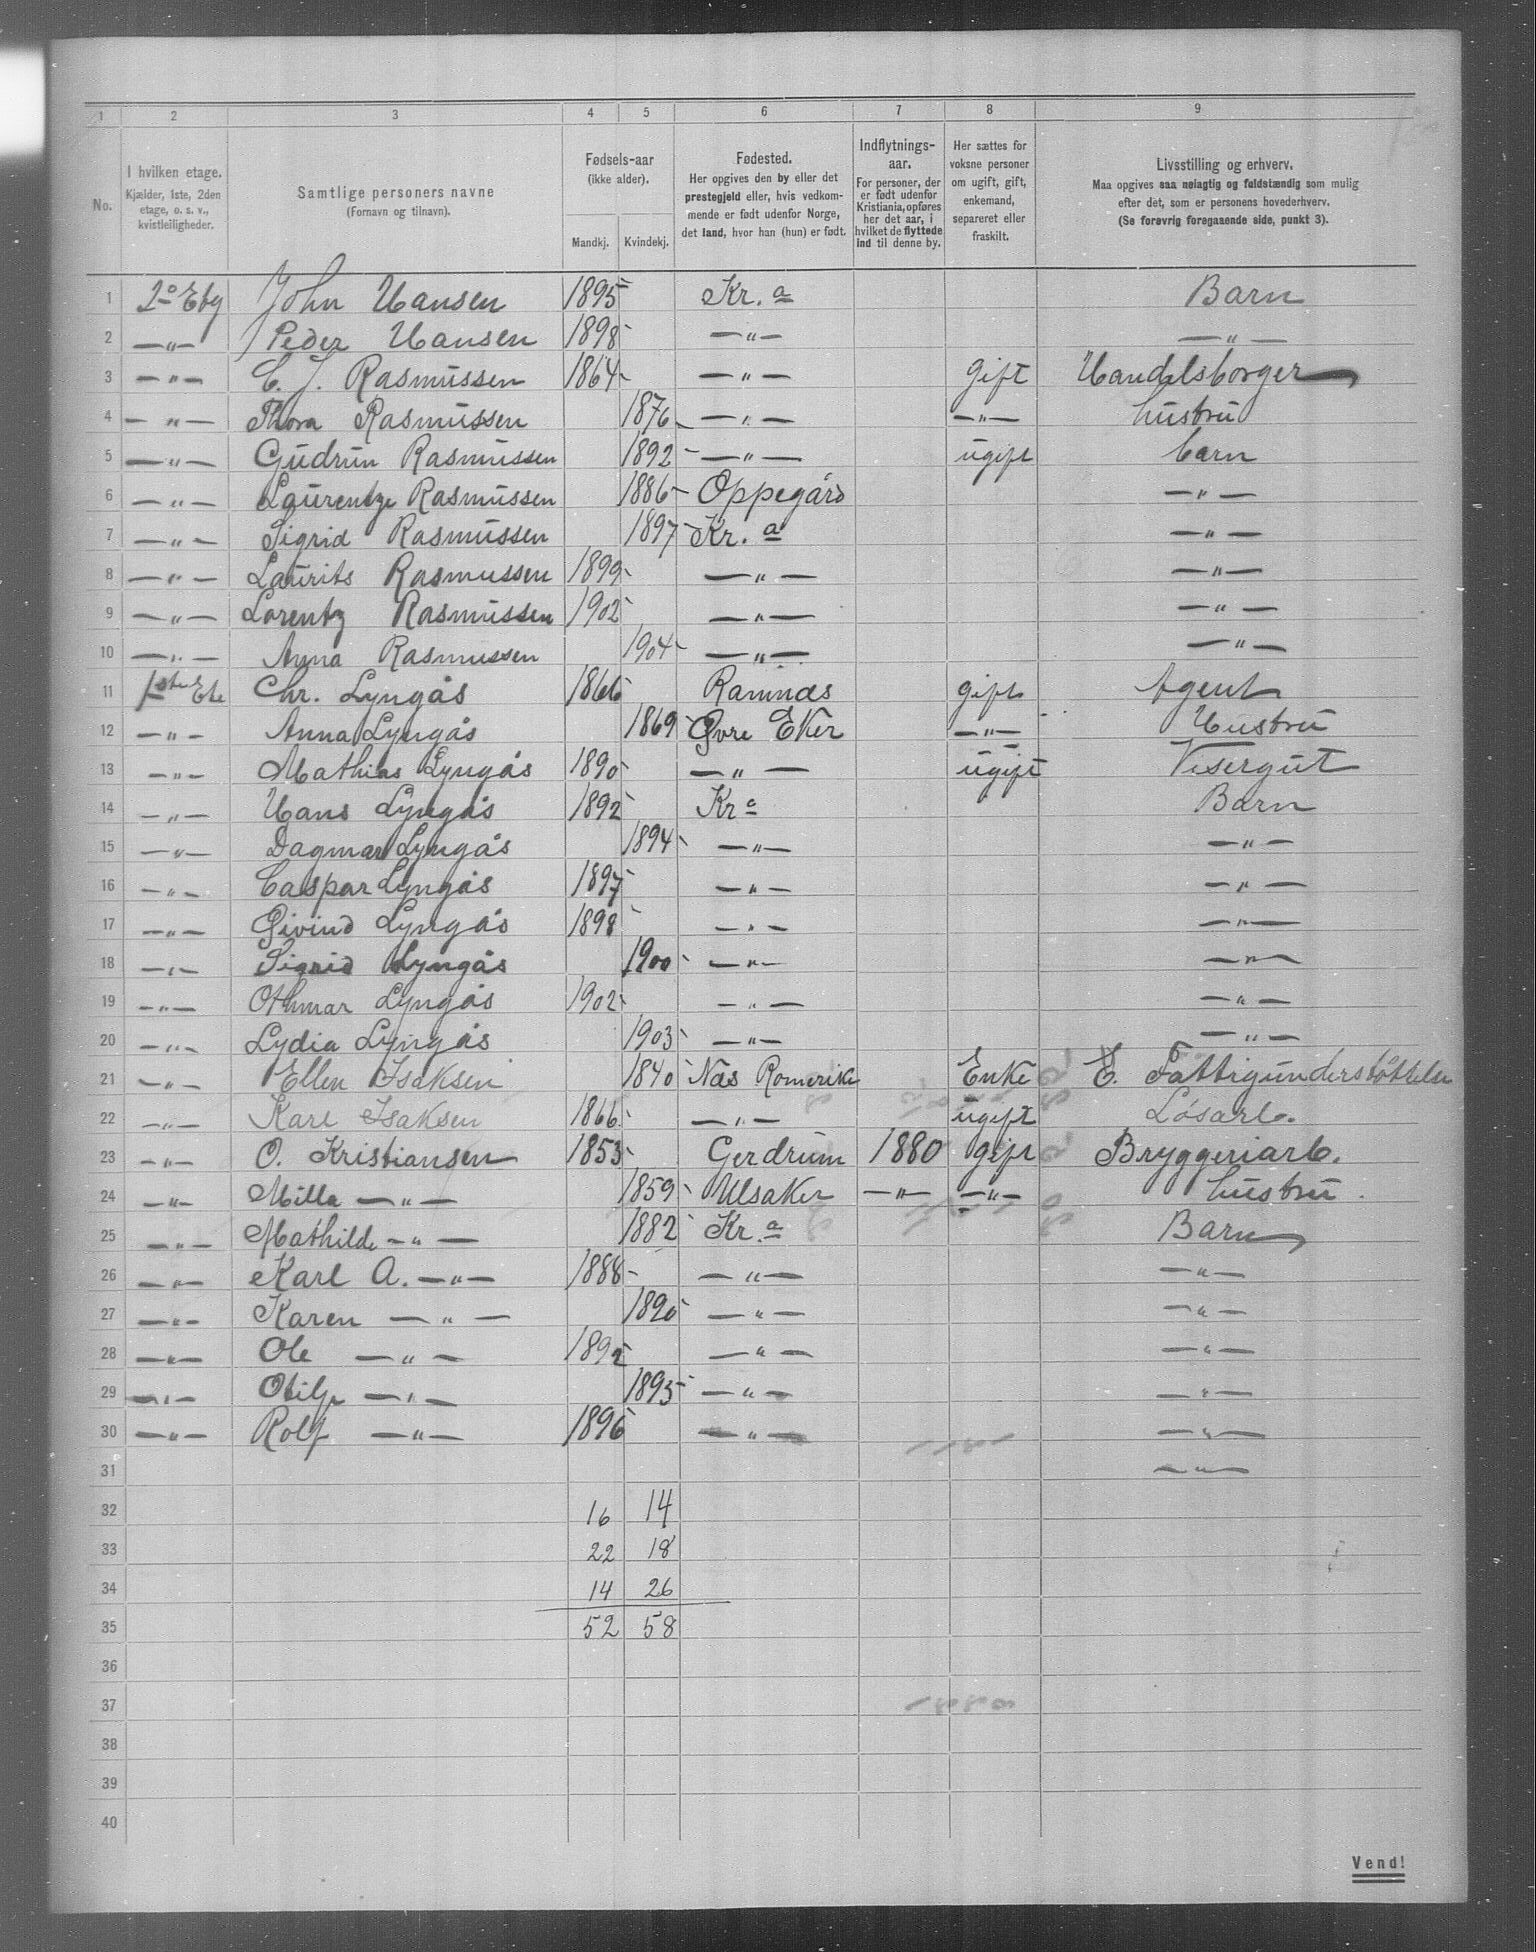 1 2 3 4 5 6 7 8 9
No. I hvilken etage. Kjælder, 1ste, 2den etage, o. s. v., kvistleiligheder. Samtlige personers navne (Fornavn og tilnavn). Fødsels-aar (ikke alder). Mandkj. Kvindekj. Fødested. Her opgives den by eller det prestegjeld eller, hvis vedkommende er født udenfor Norge, det land, hvor han (hun) er født. Indflytnings-aar. For personer, der er født udenfor Kristiania, opføres her det aar, i hvilket de flyttede ind til denne by. Her sættes for voksne personer om ugift, gift, enkemand, separeret eller fraskilt. Livsstilling og erhverv. Maa opgives saa nøiagtig og fuldstændig som mulig efter det, som er personens hovederhverv. (Se forøvrig foregaaende side, punkt 3).
1 2° Etg John Hansen 1895 Kr.a Barn
2 —„— Peder Hansen 1898 —„— —„—
3 —„— C. J. Rasmussen 1864 —„— gift Handelsborger
4 —„— Thora Rasmussen 1876 —„— —„— hustru
5 —„— Gudrun Rasmussen 1892 —„— ugift barn
6 —„— Laurentze Rasmussen 1886 Oppegård —„—
7 —„— Sigrid Rasmussen 1897 Kr.a —„—
8 —„— Laurits Rasmussen 1899 —„— —„—
9 —„— Lorentz Rasmussen 1902 —„— —„—
10 —„— Anna Rasmussen 1904 —„— —„—
11 1ste Ete Chr. Lyngås 1866 Ramnæs gift Agent
12 —„— Anna Lyngås 1869 Øvre Eker —„— Hustru
13 —„— Mathias Lyngås 1890 —„— ugift Visergut
14 —„— Hans Lyngås 1892 Kr a Barn
15 —„— Dagmar Lyngås 1894 —„— —„—
16 —„— Caspar Lyngås 1897 —„— —„—
17 —„— Øivind Lyngås 1898 —„— —„—
18 —„— Sigrid Lyngås 1900 —„— —„—
19 —„— Othmar Lyngås 1902 —„— —„—
20 —„— Lydia Lyngås 1903 —„— —„—
21 —„— Ellen Isaksen 1840 Nås Romerike Enke E. Fattigunderstøttelse
22 —„— Karl Isaksen 1866 —„— ugift Løsarb.
23 —„— O. Kristiansen 1853 Gerdrum 1880 gift Bryggeriarb.
24 —„— Milla —„— 1859 Ulsaker —„— —„— hustru
25 —„— Mathilde —„— 1882 Kr.a Barn
26 —„— Karl A. —„— 1888 —„— —„—
27 —„— Karen —„— 1890 —„— —„—
28 —„— Ole —„— 1892 —„— —„—
29 —„— Otilje —„— 1895 —„— —„—
30 —„— Rolf —„— 1896 —„— —„—
31 —„—
32 16 14
33 22 18
34 14 26
35 52 58
36
37
38
39
40
Vend!